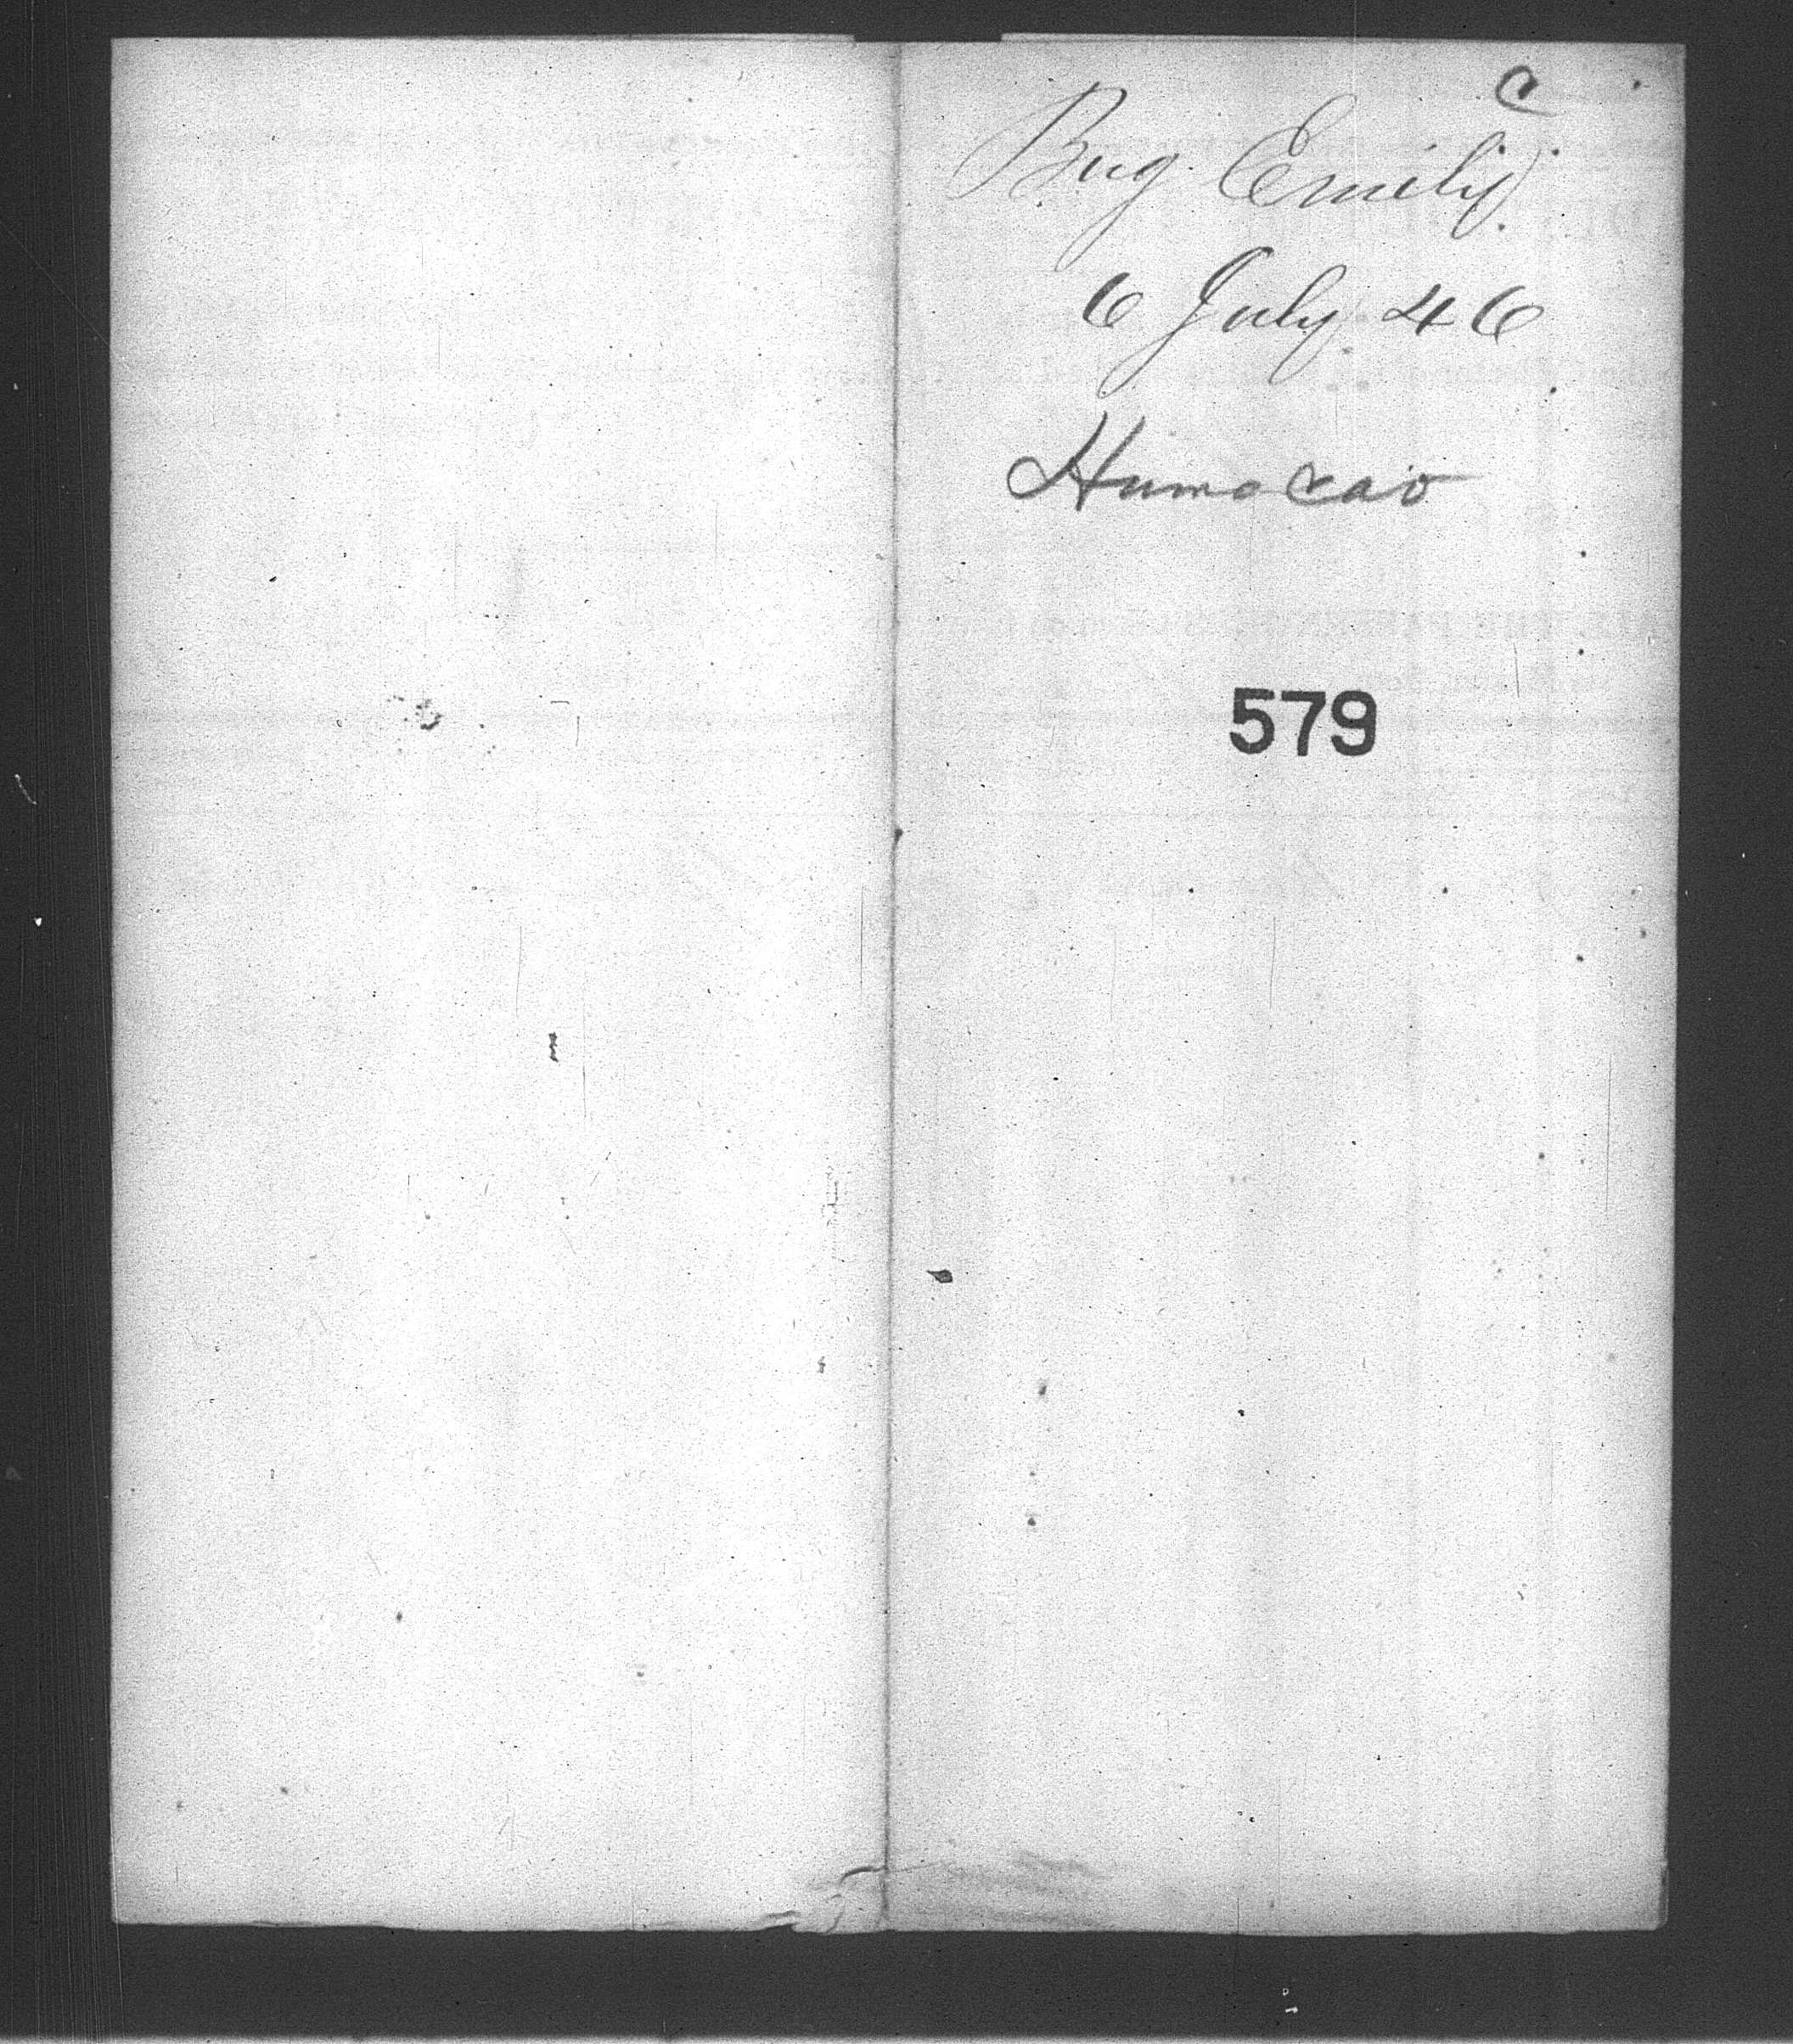 C
Brig Emily
6 July 46
Humacao
579